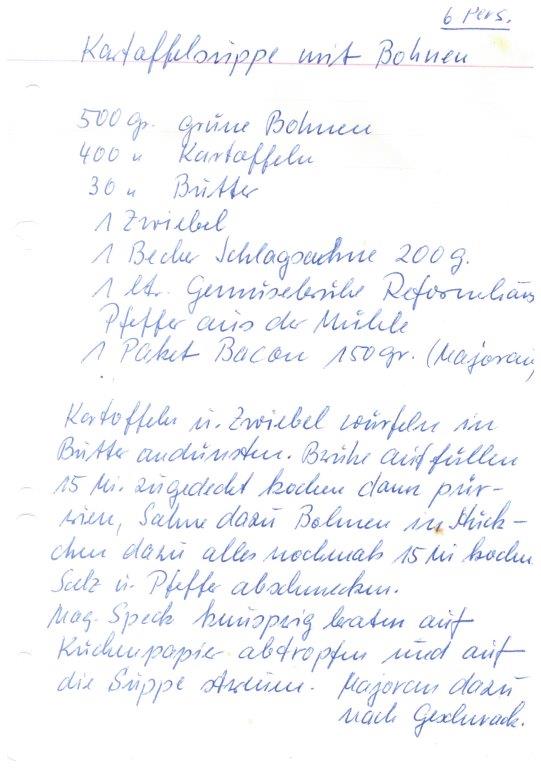 6 Pers.
Kartoffelsuppe mit Bohnen
500 gr. grüne Bohnen
400 " Kartoffeln
30 " Butter
1 Zwiebel
1 Becher Schlagsahne 200 g.
1 ltr. Gemüsebrühe Reformhaus
Pfeffer aus der Mühle
1 Paket Bacon 150 gr. (Majoran)
Kartoffeln u. Zwiebel würfeln in
Butter andünsten. Brühe auffüllen
15 Mi. zugedeckt kochen dann pür-
rieren, Sahne dazu Bohnen in Stück-
chen dazu alles nochmals 15 Mi kochen
Salz u. Pfeffer abschmecken.
Mag. Speck knusprig braten auf
Küchenpapier abtropfen und auf
die Suppe streuen. Majoran dazu
nach Geschmack.